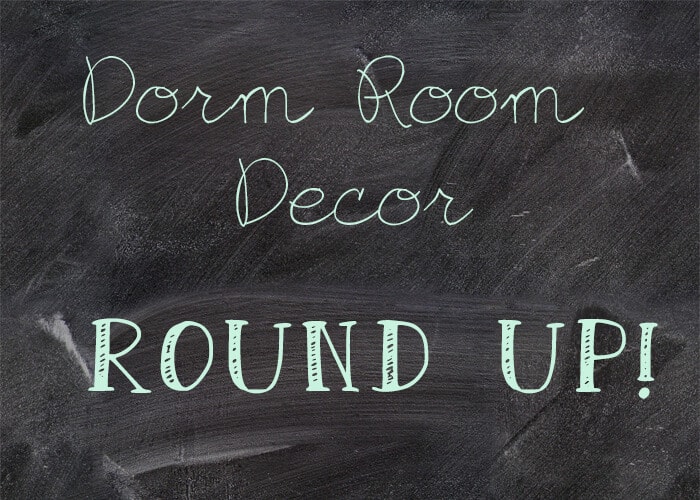 Dorm Room
Decor
ROUND UP!